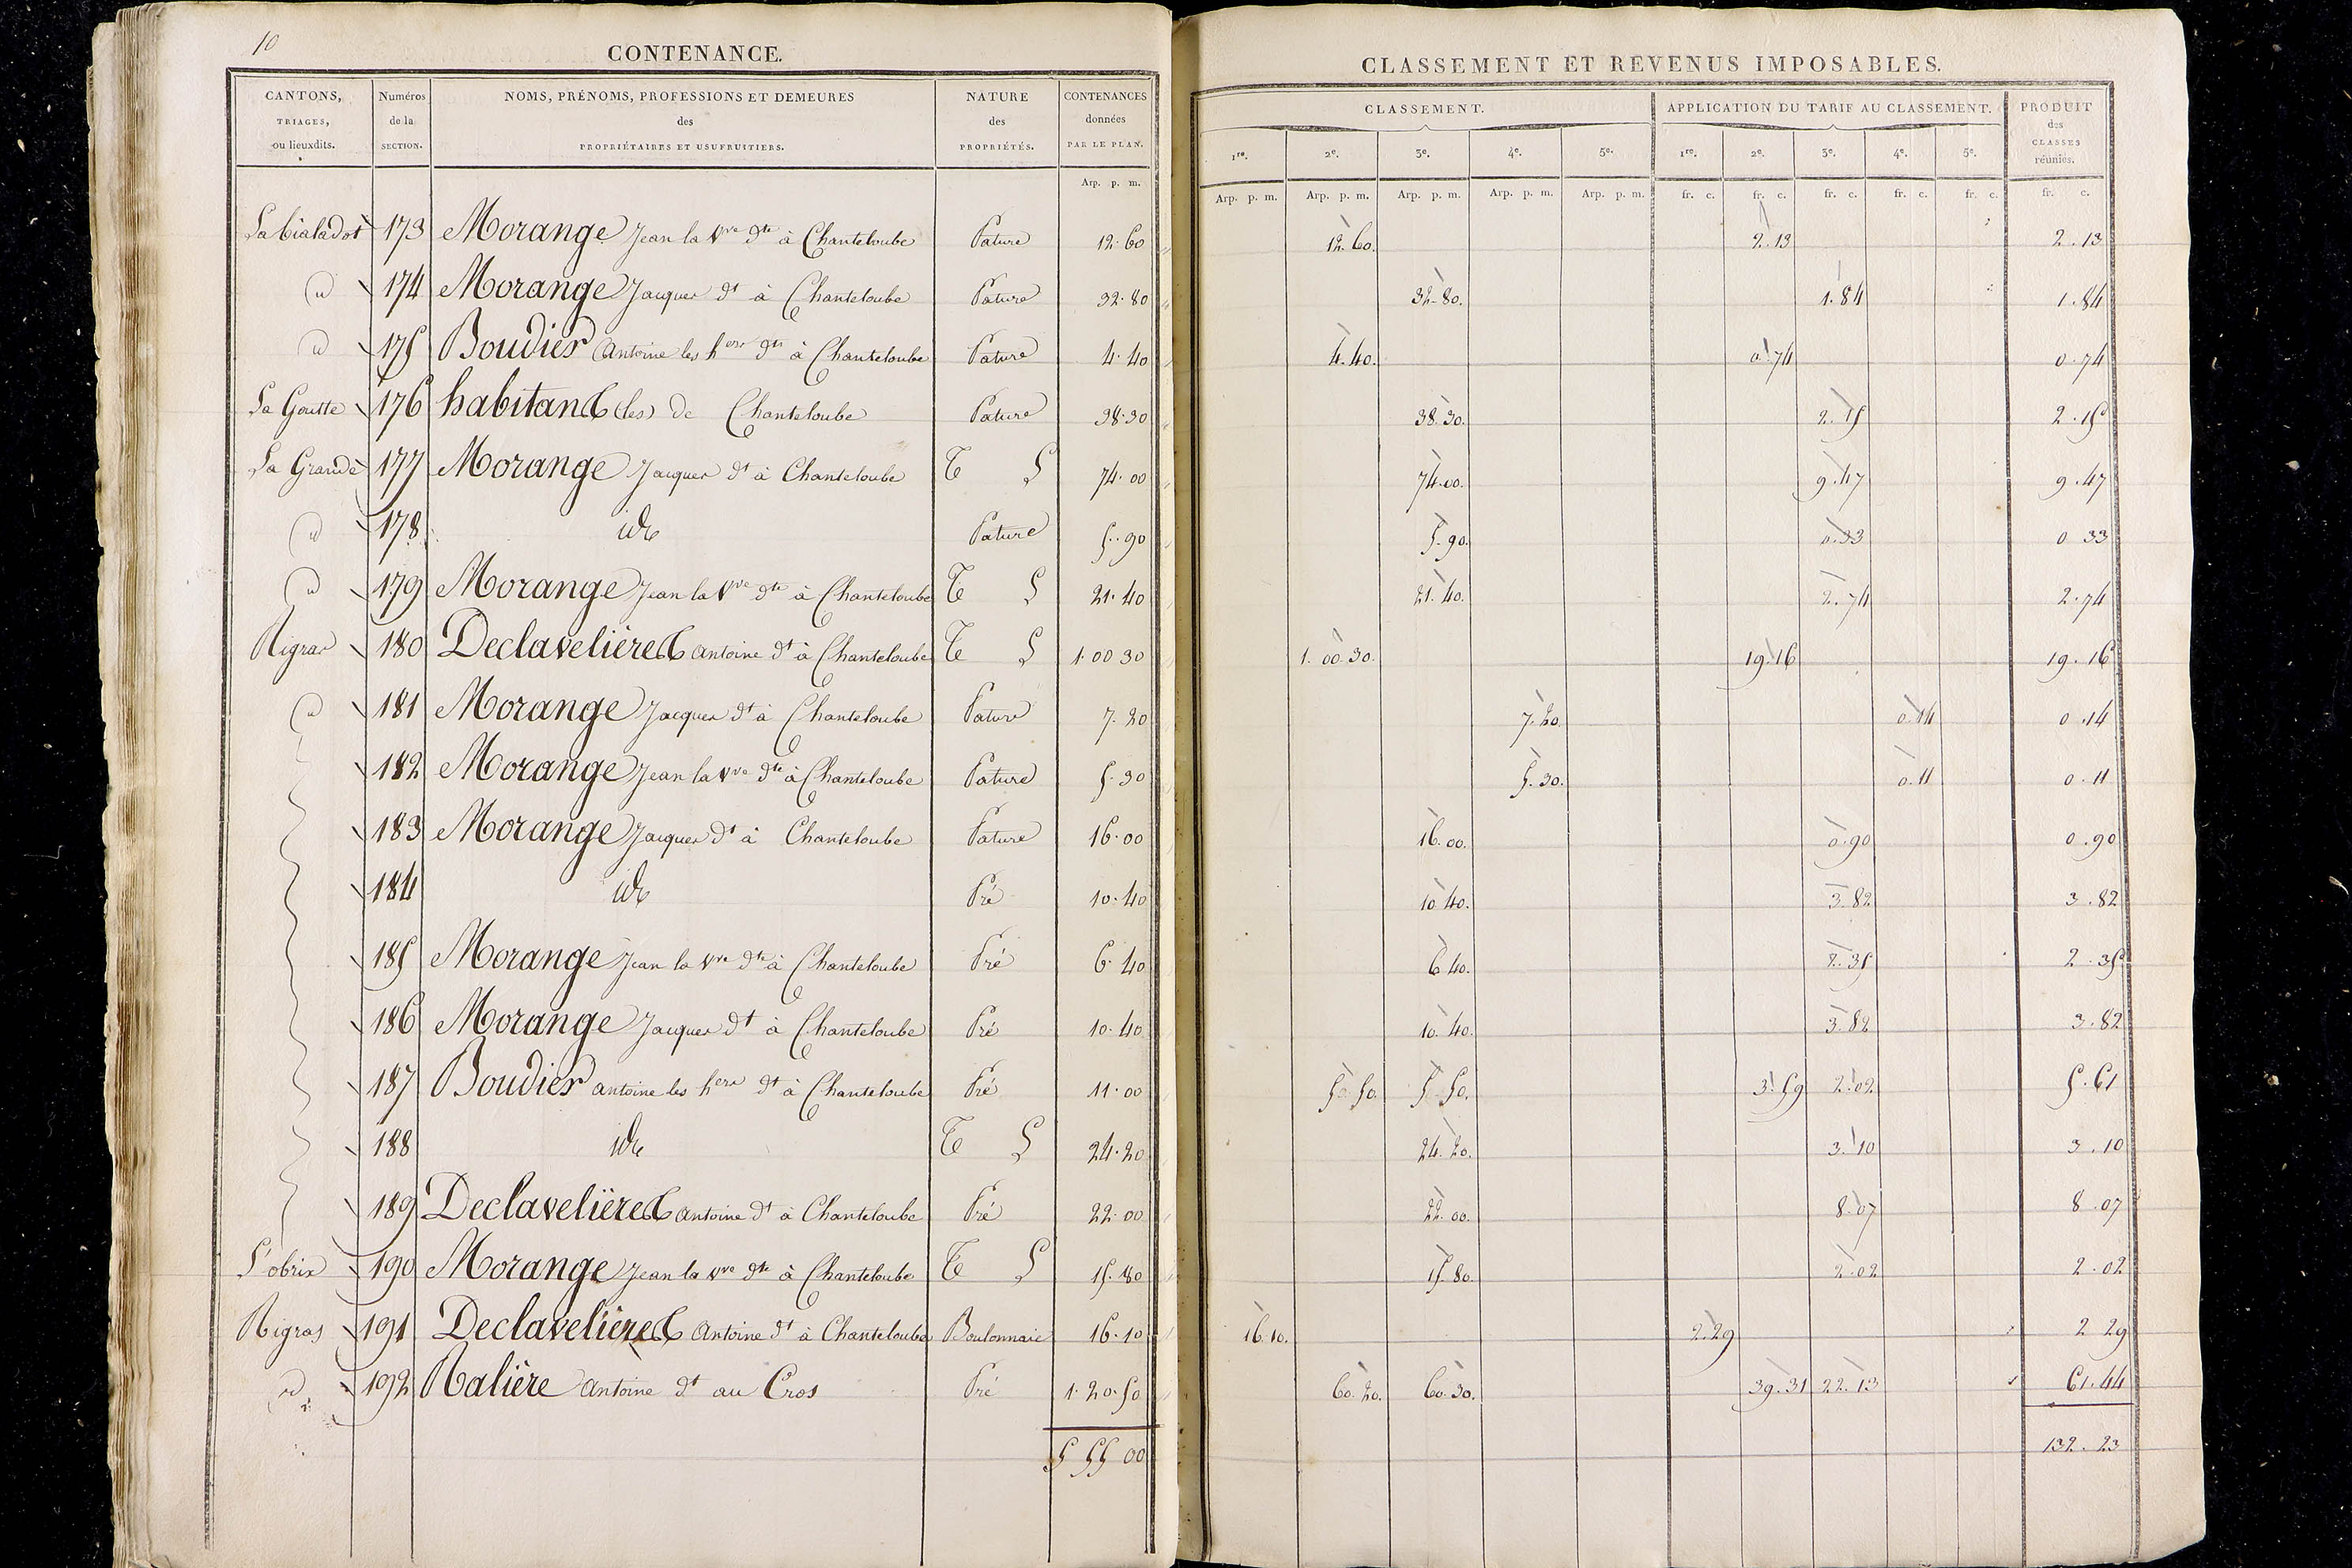 10
CONTENANCE.
CANTONS, TRIAGES, ou lieuxdits.
Numéros de la SECTION.
NOMS, PRÉNOMS, PROFESSIONS ET DEMEURES des PROPRIÉTAIRES ET USUFRUITIERS.
NATURE des PROPRIÉTÉS.
CONTENANCES données PAR LE PLAN.
Arp. p. m.
CLASSEMENT ET REVENUS IMPOSABLES.
CLASSEMENT.
APPLICATION DU TARIF AU CLASSEMENT.
PRODUIT des CLASSES réunies.
1re. 2e. 3e. 4e. 5e. 1re. 2e. 3e. 4e. 5e.
Arp. p. m. Arp. p. m. Arp. p. m. Arp. p. m. Arp. p. m. fr. c. fr. c. fr. c. fr. c. fr. c. fr. c.
173 Morange Jean la Vve dte à Chanteloube Pature 12.60 12.60. 2.13 2.13
id 174 Morange Jacques dt à Chanteloube Pature 32.80 32.80. 1.84 1.84
id 175 Boudier Antoine les hers dts à Chanteloube Pature 4.40 4.40. 0.74 0.74
La Goutte 176 habitants (les) de Chanteloube Pature 38.30 38.30. 2.15 2.15
La Grande 177 Morange Jacques dt à Chanteloube T S 74.00 74.00. 9.47 9.47
id 178 id Pature 5.90 5.90. 0.33 0 33
id 179 Morange Jean la Vve dte à Chanteloube T S 21.40 21.40. 2.74 2.74
Rigras 180 Declavelières Antoine dt à Chanteloube T S 1.00 30 1.00.30. 19.16 19.16
id 181 Morange Jacques dt à Chanteloube Pature 7.20 7.20. 0.14 0.14
182 Morange Jean la vve dte à Chanteloube Pature 5.30 5.30. 0.11 0.11
183 Morange Jacques dt à Chanteloube Pature 16.00 16.00. 0.90 0.90
184 id Pré 10.40 10.40. 3.82 3.82
185 Morange Jean la vve dte à Chanteloube Pré 6.40 6.40. 2.35 2.35
186 Morange Jacques dt à Chanteloube Pré 10.40 10.40. 3.82 3.82
187 Boudier antoine les hers dt à Chanteloube Pré 11.00 5.50. 5.50. 3.59 2.02 5.61
188 id T S 24.20 24.20. 3.10 3.10
189 Declavelières Antoine dt à Chanteloube Pré 22.00 22.00. 8.07 8.07
L'obrix 190 Morange Jean la vve dte à Chanteloube T S 15.80 15.80. 2.02 2.02
Rigras 191 Declavelières Antoine dt à Chanteloube Boulonnaie 16.10 16.10. 2.29 2 29
id 192 Ralière Antoine dt au Cros Pré 1.20.50 60.20. 60.30. 39.31 22.13 61.44
5 55 00 132.23